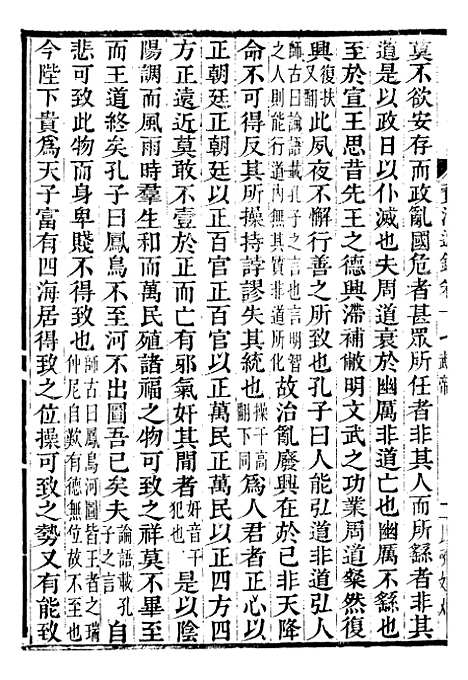 莫不欲安存而政亂國危者甚眾所任者非其人而所繇者非其
道是以政日以仆滅也夫周道衰於幽厲非道亡也幽厲不繇也
至於宣王思昔先王之德興滯補敝明文武之功業周道粲然復
興復扶又翻此夙夜不懈行善之所致也孔子曰人能弘道非道弘人
師古曰論語載孔子之言言明智之人則能行道內無其質非道所化故治亂廢興在於己非天降
命不可得反其所操持誖謬失其統也操干高翻下同為人君者正心以
正朝廷正朝廷以正百官正百官以正萬民正萬民以正四方四
方正遠近莫敢不壹於正而亡有邪氣奸其間者奸音干犯也是以陰
陽調而風雨時羣生和而萬民殖諸福之物可致之祥莫不畢至
而王道終矣孔子曰鳳鳥不至河不出圖吾已矣夫論語載孔子之言自
悲可致此物而身卑賤不得致也師古曰鳳鳥河圖皆王者之瑞仲尼自歎有德無位故不至也
今陛下貴為天子富有四海居得致之位操可致之勢又有能致